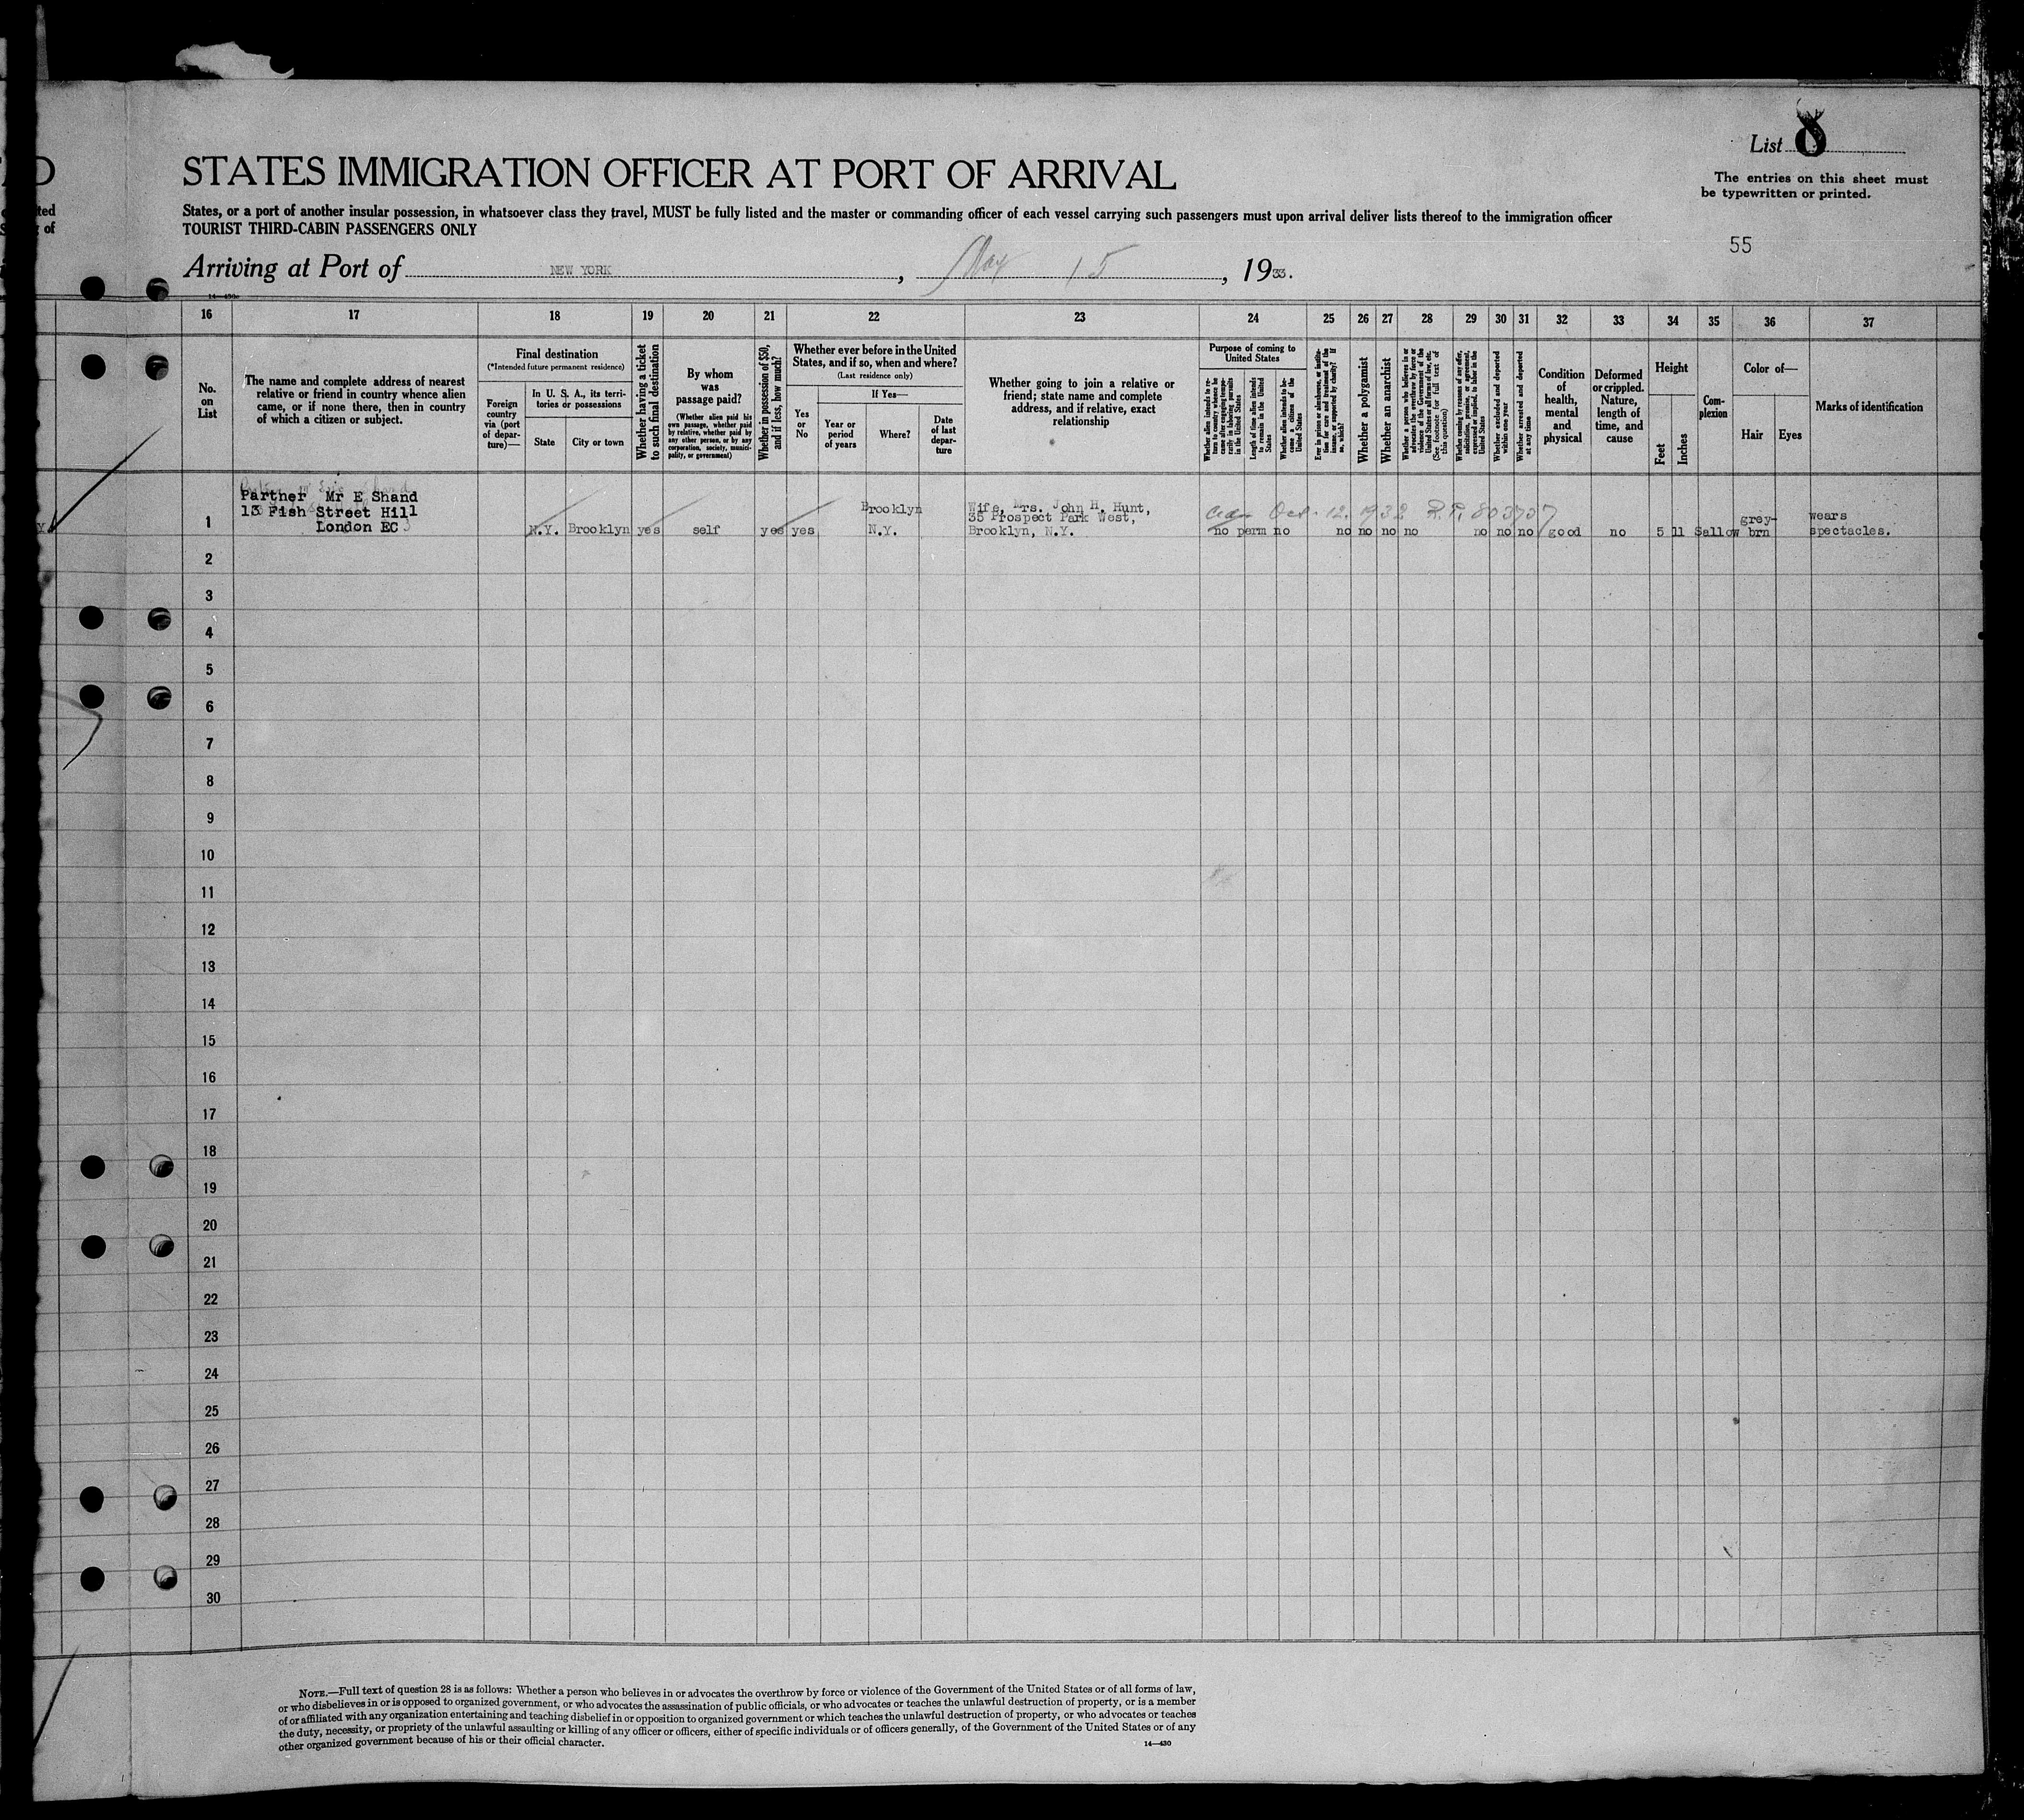 List 8
STATES IMMIGRATION OFFICER AT PORT OF ARRIVAL
The entries on this sheet must
be typewritten or printed.
ted
of
States, or a port of another insular possession, in whatsoever class they travel, MUST be fully listed and the master or commanding officer of each vessel carrying such passengers must upon arrival deliver lists thereof to the immigration officer
TOURIST THIRD-CABIN PASSENGERS ONLY
55
Arriving at Port of NEW YORK, May 15, 1933.
14—430c
16 17 18 19 20 21 22 23 24 25 26 27 28 29 30 31 32 33 34 35 36 37
No.
on
List
The name and complete address of nearest
relative or friend in country whence alien
came, or if none there, then in country
of which a citizen or subject.
Final destination
(*Intended future permanent residence)
Foreign
country
via (port
of depar-
ture)—
In U. S. A., its terri-
tories or possessions
State
City or town
Whether having a ticket
to such final destination
By whom
was
passage paid?
(Whether alien paid his
own passage, whether paid
by relative, whether paid by
any other person, or by any
corporation, society, munici-
pality, or government)
Whether in possession of $50,
and if less, how much?
Whether ever before in the United
States, and if so, when and where?
(Last residence only)
Yes
or
No
If Yes—
Year or
period
of years
Where?
Date
of last
depar-
ture
Whether going to join a relative or
friend; state name and complete
address, and if relative, exact
relationship
Purpose of coming to
United States
Whether alien intends to re-
turn to country whence he
came after engaging tempo-
rarily in laboring pursuits
in the United States
Length of time alien intends
to remain in the United
States
Whether alien intends to be-
come a citizen of the
United States
Ever in prison or almshouse, or institu-
tion for care and treatment of the
insane, or supported by charity? If
so, which?
Whether a polygamist
Whether an anarchist
Whether a person who believes in or
advocates the overthrow by force or
violence of the Government of the
United States or all forms of law, etc.
(See footnote for full text of
this question)
Whether coming by reason of any offer,
solicitation, promise, or agreement,
expressed or implied, to labor in the
United States
Whether excluded and deported
within one year
Whether arrested and deported
at any time
Condition
of
health,
mental
and
physical
Deformed
or crippled.
Nature,
length of
time, and
cause
Height
Feet
Inches
Com-
plexion
Color of—
Hair
Eyes
Marks of identification
Partner Mr E Shand
13 Fish Street Hill
London EC3
1
N.Y. Brooklyn yes self yes yes
Brooklyn
N.Y.
Wife, Mrs. John H. Hunt,
35 Prospect Park West,
Brooklyn, N.Y.
Oct. 12. 1932 R.P. 803737
no perm no no no no no no no no good no 5 11 Sallow
grey-
brn
wears
spectacles.
2
3
4
5
6
7
8
9
10
11
12
13
14
15
16
17
18
19
20
21
22
23
24
25
26
27
28
29
30
NOTE.—Full text of question 28 is as follows: Whether a person who believes in or advocates the overthrow by force or violence of the Government of the United States or of all forms of law,
or who disbelieves in or is opposed to organized government, or who advocates the assassination of public officials, or who advocates or teaches the unlawful destruction of property, or is a member
of or affiliated with any organization entertaining and teaching disbelief in or opposition to organized government or which teaches the unlawful destruction of property, or who advocates or teaches
the duty, necessity, or propriety of the unlawful assaulting or killing of any officer or officers, either of specific individuals or of officers generally, of the Government of the United States or of any
other organized government because of his or their official character.
14—430